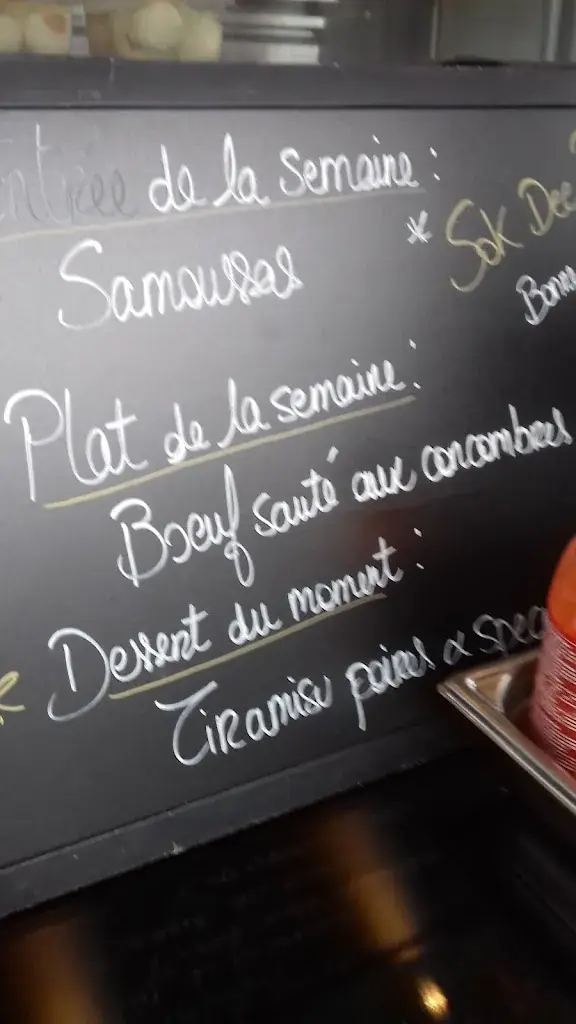 Entrée de la semaine :
* Sok Dee
Samoussas
Plat de la semaine :
Boeuf sauté aux concombres
Dessert du moment :
Tiramisu poires &